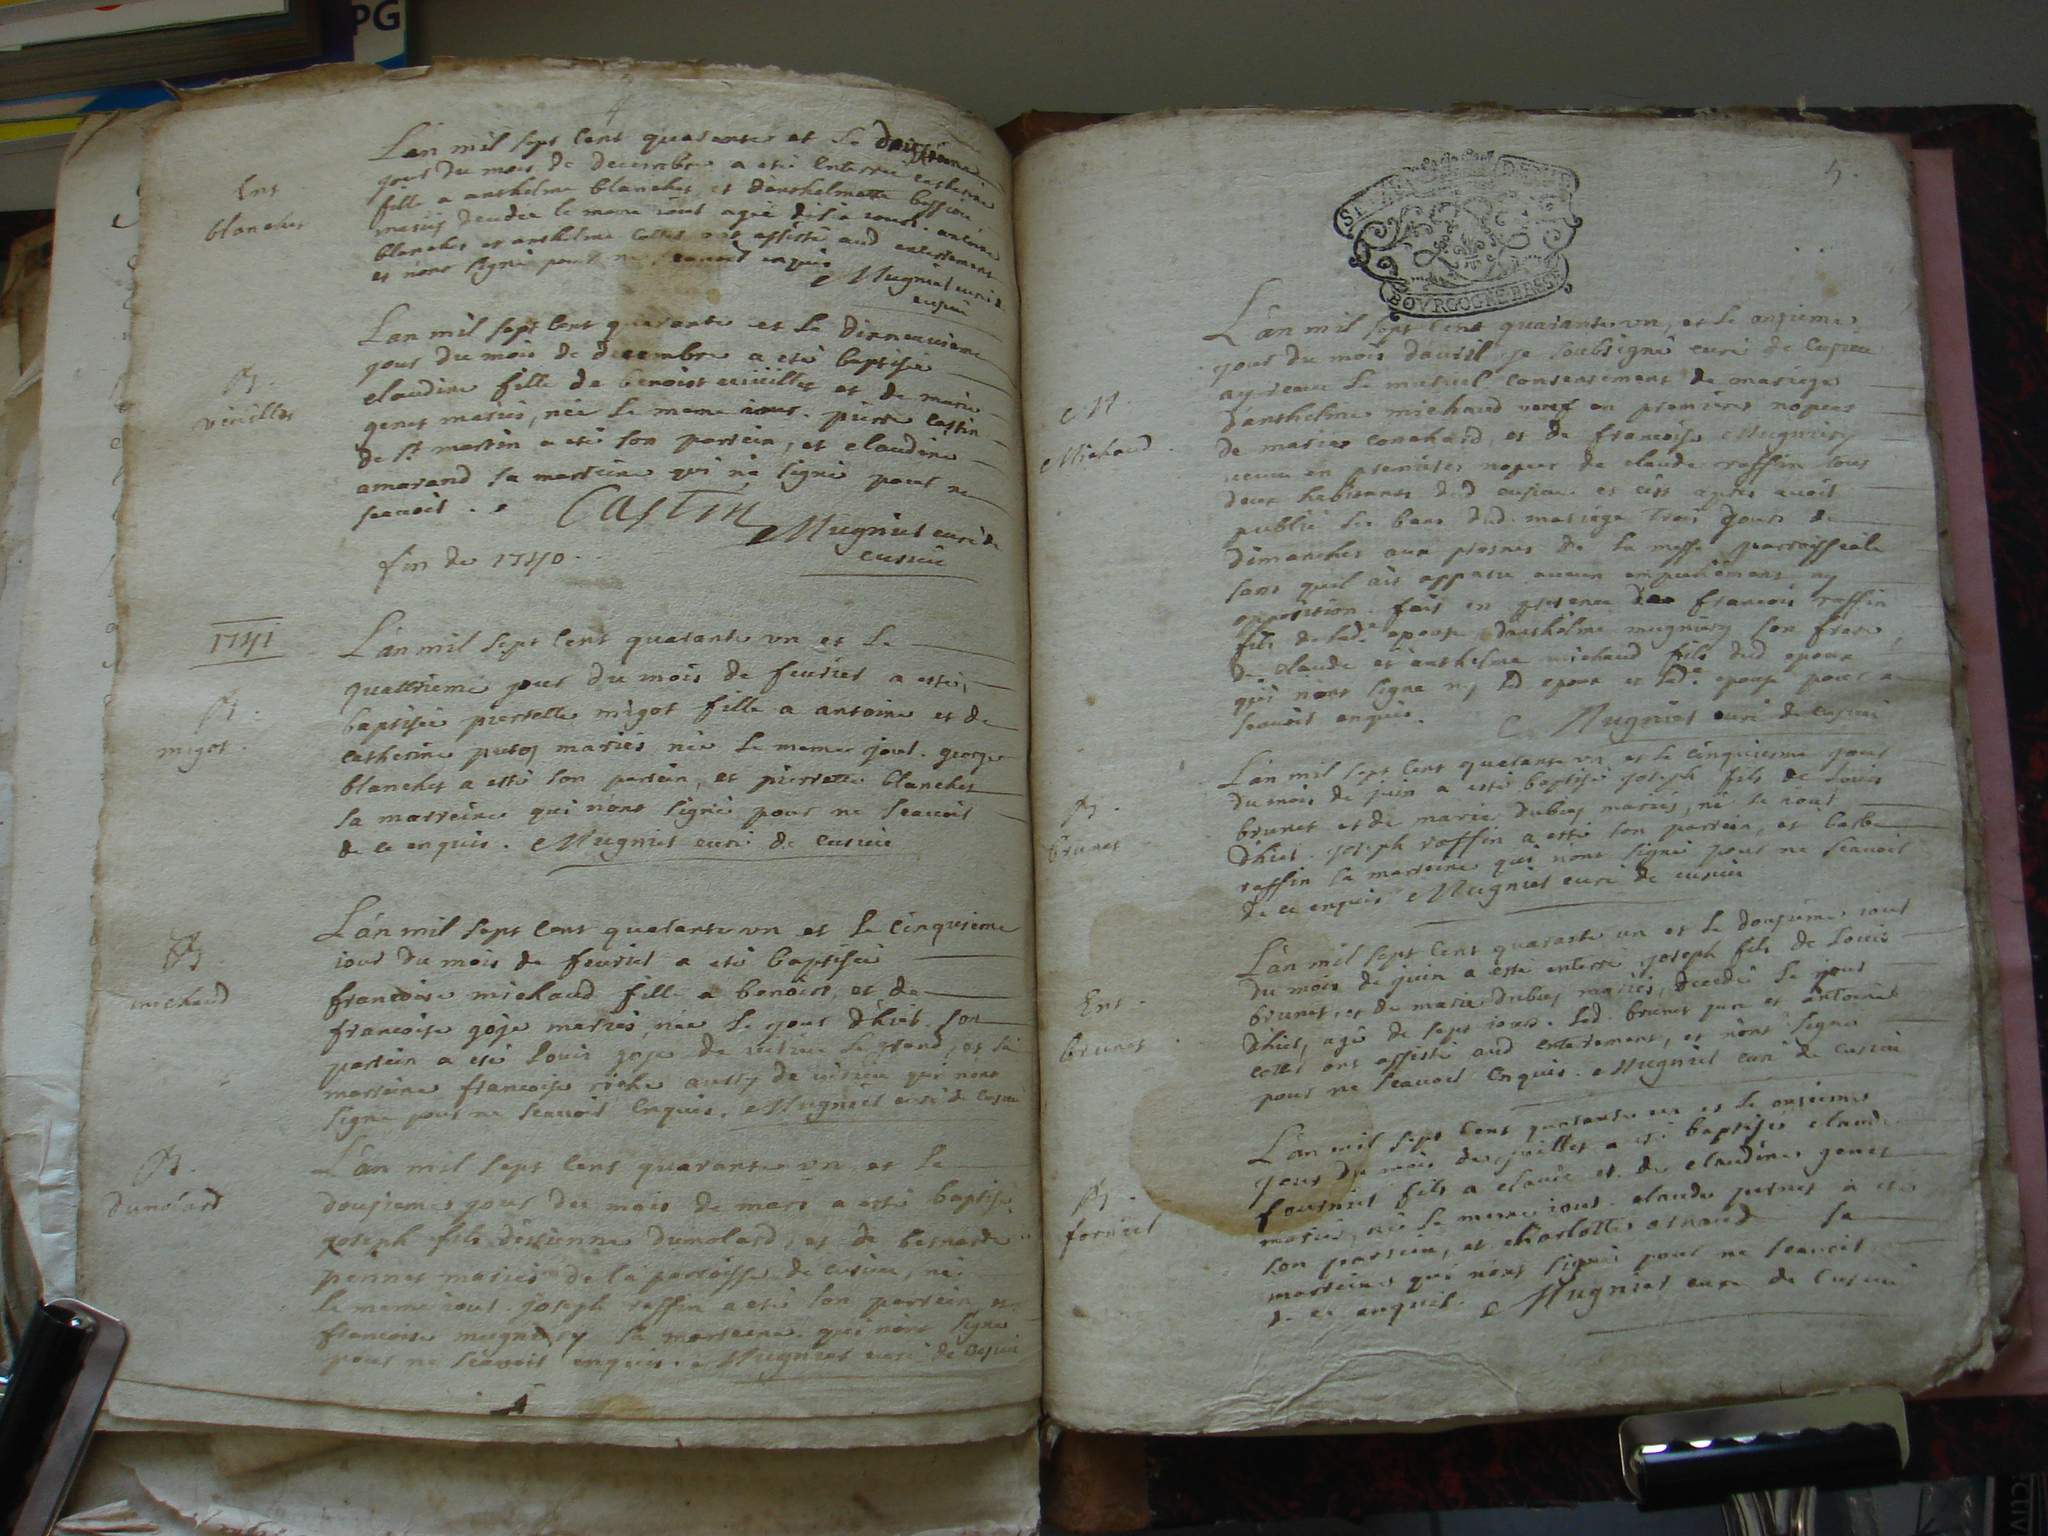 PG
4
Ent
blanchet
L'an mil sept cent quarante et le
jour du mois de decembre a eté enterrée catherine
fille a anthelme blanchet, et d'anthelmette
mariés decedée le meme iour agée antoine
blanchet et anthelme ont assisté aud enterrement
et n'ont signé pour ne enquis Mugniet curé de
cusieu
B.
veuillet
L'an mil sept cent quarante et le dixneuvieme
jour du mois de decembre a eté baptisée
claudine fille de benoist veuillet et de marie
genet mariés, née le meme iour. pierre castin
de St martin a eté son parrein, et claudine
amarand sa marreine qui n'a signé pour ne
scavoir. Castin Mugniet curé de
cusieu
fin de 1740.
1741
B.
migot.
L'an mil sept cent quarante un et le
quattrieme jour du mois de fevrier a esté
baptisée pierrette migot fille a antoine et de
catherine mariés née le meme jour. george
blanchet a esté son parrein, et pierrette blanchet
sa marreine qui n'ont signé pour ne scavoir
de ce enquis. Mugniet curé de cusieu
B.
michaud
L'an mil sept cent quarante un et le cinquieme
iour du mois de fevrier a eté baptisée
francoise michaud fille a benoist, et de
francoise goje mariés, née le jour d'hier. son
parrein a eté louis goje de virieu le grand, et sa
marreine francoise riche aussy de virieu qui n'ont
signé pour ne scavoir enquis. Mugniet curé de cusieu
B.
dumolard
L'an mil sept cent quarante un et le
douzieme jour du mois de mars a esté baptisé
joseph fils d'estienne dumolard, et de bernarde
pennet mariés de la parroisse de cusieu, né
le meme iour. joseph raffin a eté son parrein, et
francoise mugniery sa marreine qui n'ont signé
pour ne scavoir enquis. Mugniet curé de cusieu
5.
BOVRGOGNE BRESSE
M.
Michaud
L'an mil sept cent quarante un, et le onzieme
jour du mois d'avril je soubsigné curé de cusieu
ay receu le mutuel consentement de mariage
d'anthelme michaud veuf en premieres nopces
de marie conchard, et de francoise Mugniery
veuve en premieres nopces de claude raffin tous
deux habitants dud cusieu et c'est apres avoir
publié les bans dud. mariage trois jours de
dimanches aux prosnes de la messe parroissiale
sans qu'il ait apparu aucun empechement, ny
opposition. fait en presence de francois raffin
fils de lad.e epouse d'anthelme mugniery son frere,
de claude et anthelme michaud fils dud epoux
qui n'ont signé ny led epoux et lad.e epouse pour ne
scavoir enquis. Mugniet curé de cusieu
B
brunet
L'an mil sept cent quarante un et le cinquiesme jour
du mois de juin a esté baptisé joseph fils de louis
brunet et de marie dubuy mariés, né le iour
d'hier. joseph raffin a esté son parrein, et barbe
raffin la marreine qui n'ont signé pour ne scavoir
de ce enquis Mugniet curé de cusieu
Ent.
brunet
L'an mil sept cent quarante un et le douzieme iour
du mois de juin a esté enterré joseph fils de louis
brunet, et de marie dubuy mariés, decedé le jour
d'hier, agé de sept iours. led. brunet pere et antoine
ont assisté aud enterrement, et n'ont signé
pour ne scavoir enquis. Mugniet curé de cusieu
B.
forniet
L'an mil sept cent quarante un et le onzieme
jour du mois de juillet a eté baptisé claude
fourniet fils a claude et de claudine genet
mariés, né le meme iour. claude a eté
son parrein, et charlotte sa
marreine qui n'ont signé pour ne scavoir
de ce enquis. Mugniet curé de cusieu